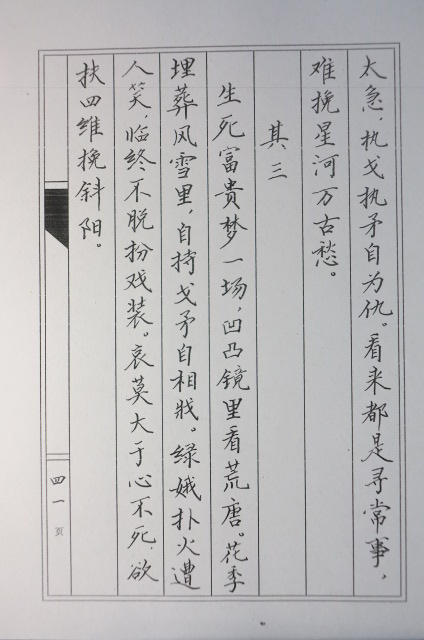 太急，执戈执矛自为仇。看来都是寻常事，
难挽星河万古愁。
其三
生死富贵梦一场，凹凸镜里看荒唐。花季
埋葬风雪里，自持戈矛自相戕。绿娥扑火遭
人笑，临终不脱扮戏装。哀莫大于心不死，欲
扶四维挽斜阳。
四一页